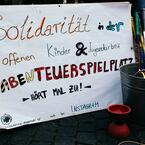 Solidarität in der
offenen Kinder & Jugendarbeit
ABENTEUERSPIELPLATZ
HÖRT MAL ZU!
INSTAGRAM